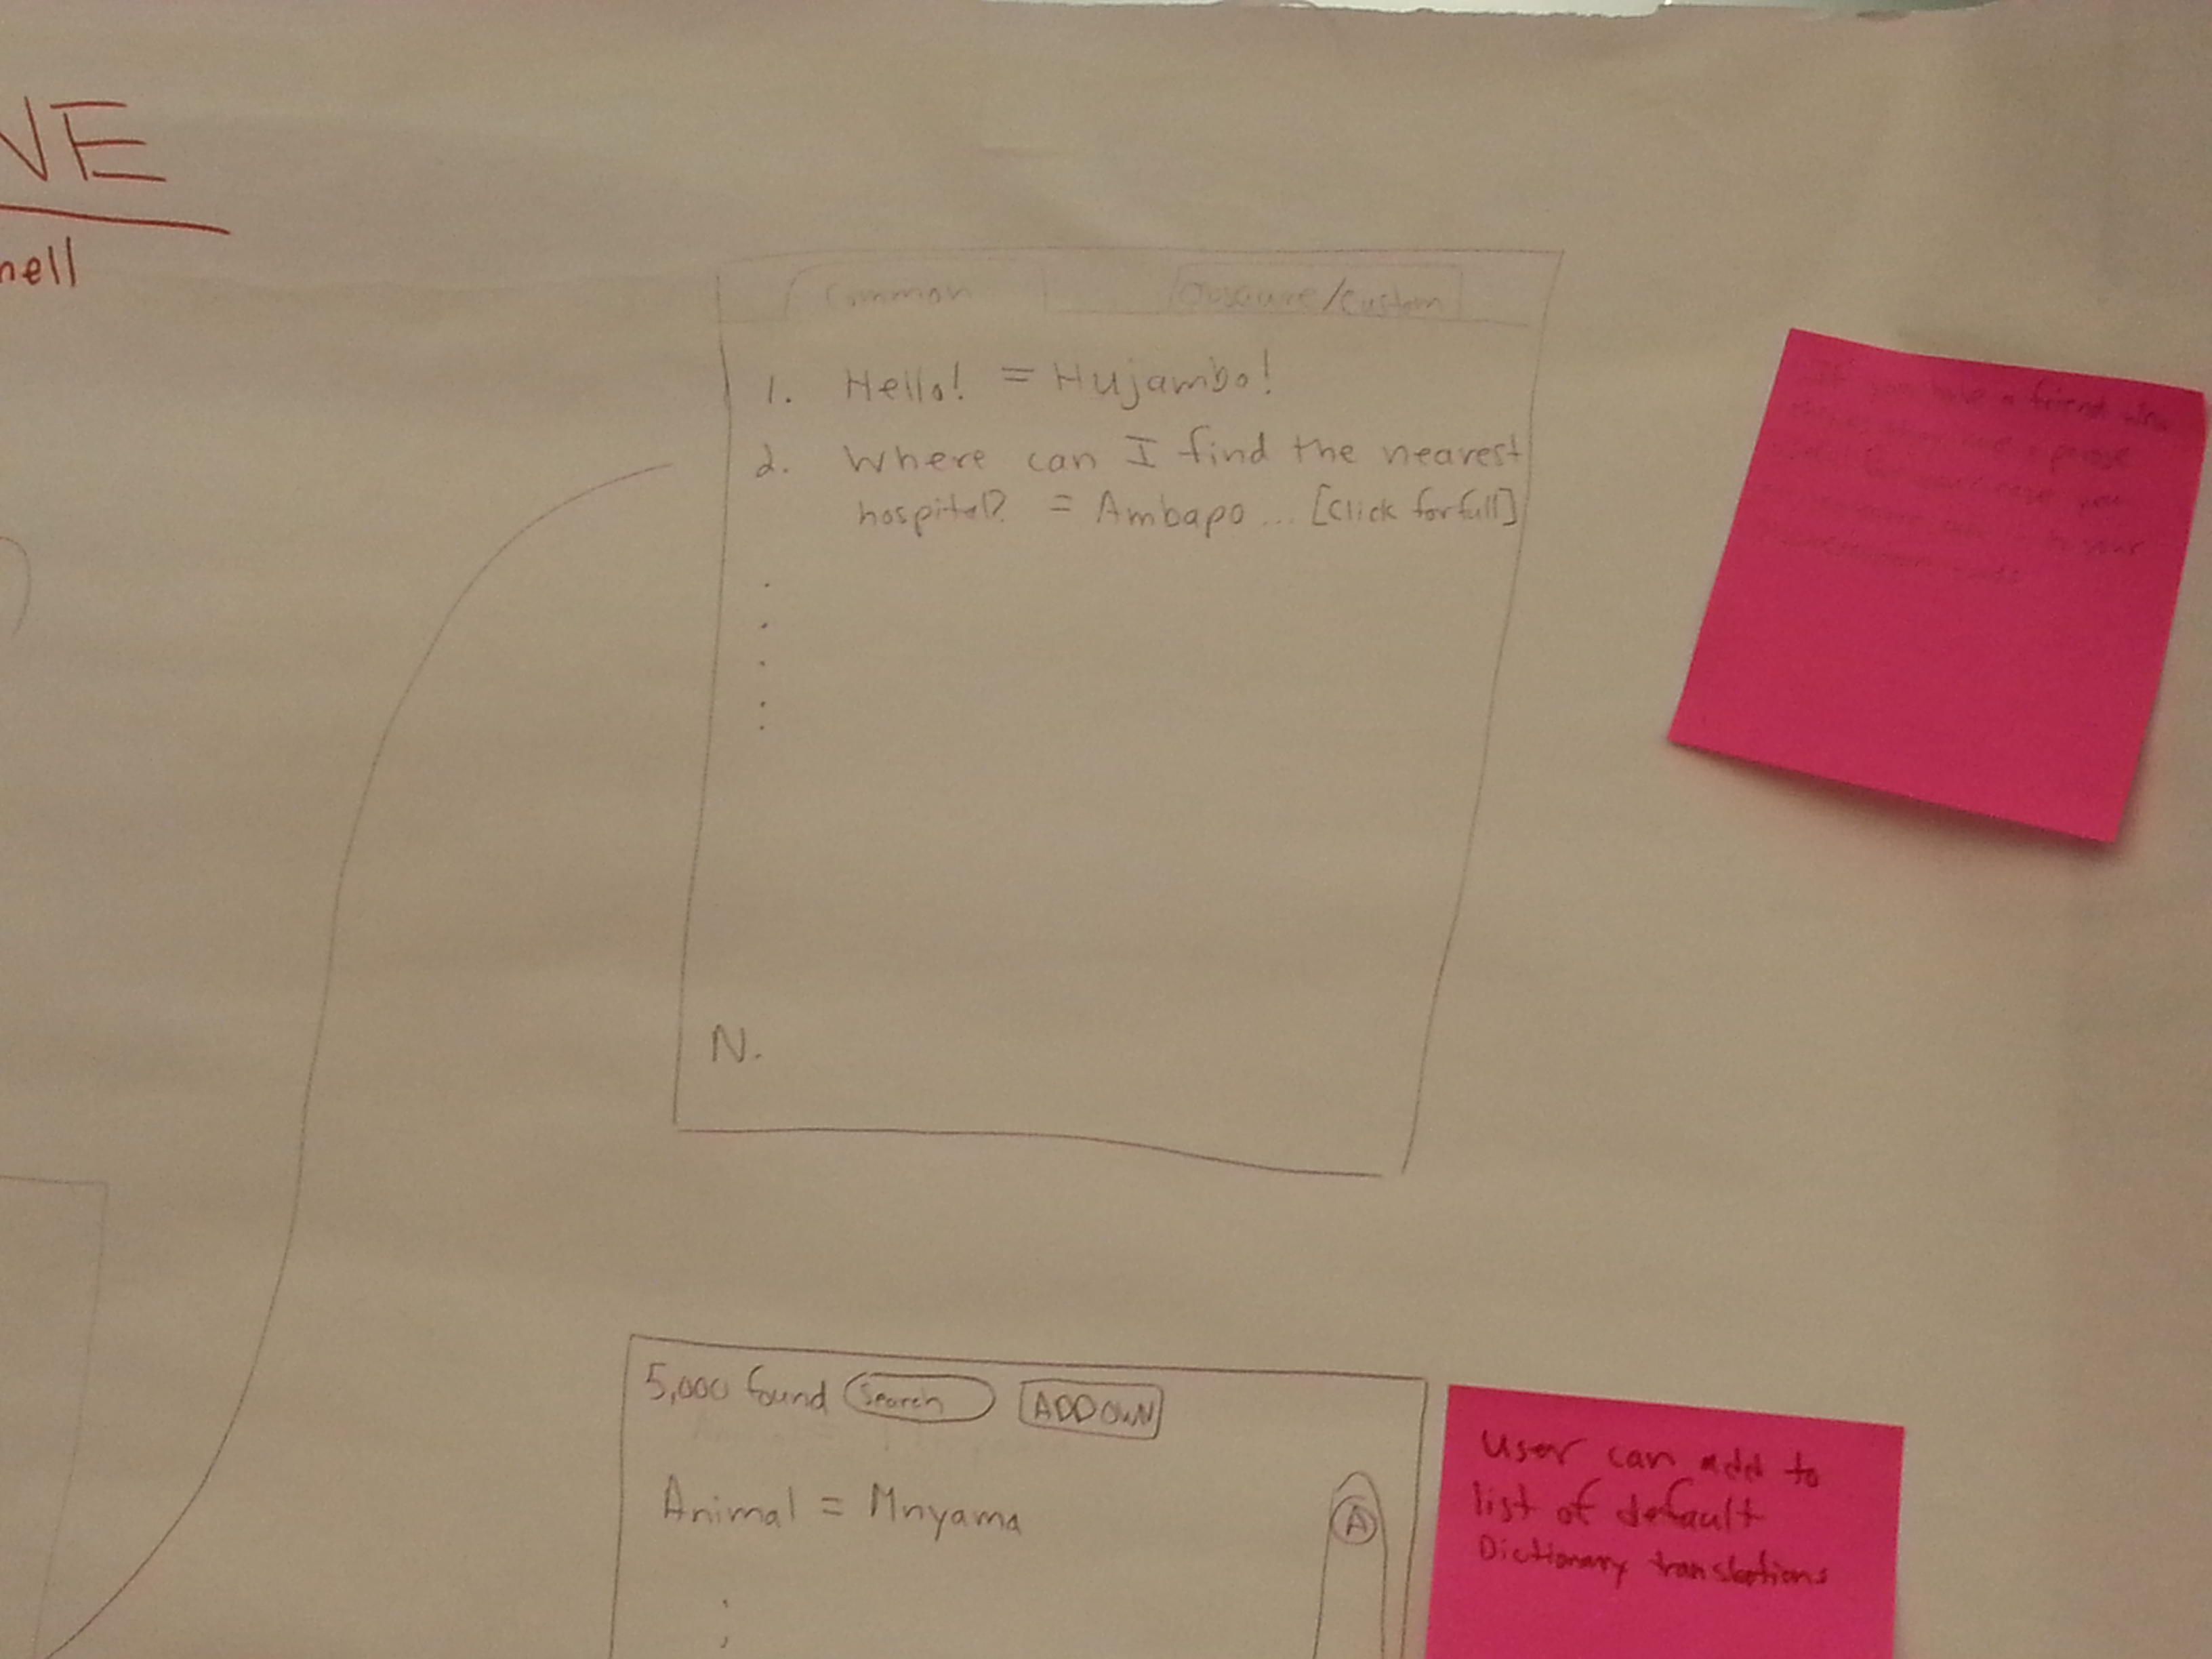 NE
nell
Common
Obscure/Custom
1. Hello! = Hujambo!
2. Where can I find the nearest
hospital? = Ambapo ... [click for full]
N.
If you have a friend who
a phrase
you
to your
5,000 found Search ADD OWN
Animal = Mnyama
A
user can add to
list of default
Dictionary translations